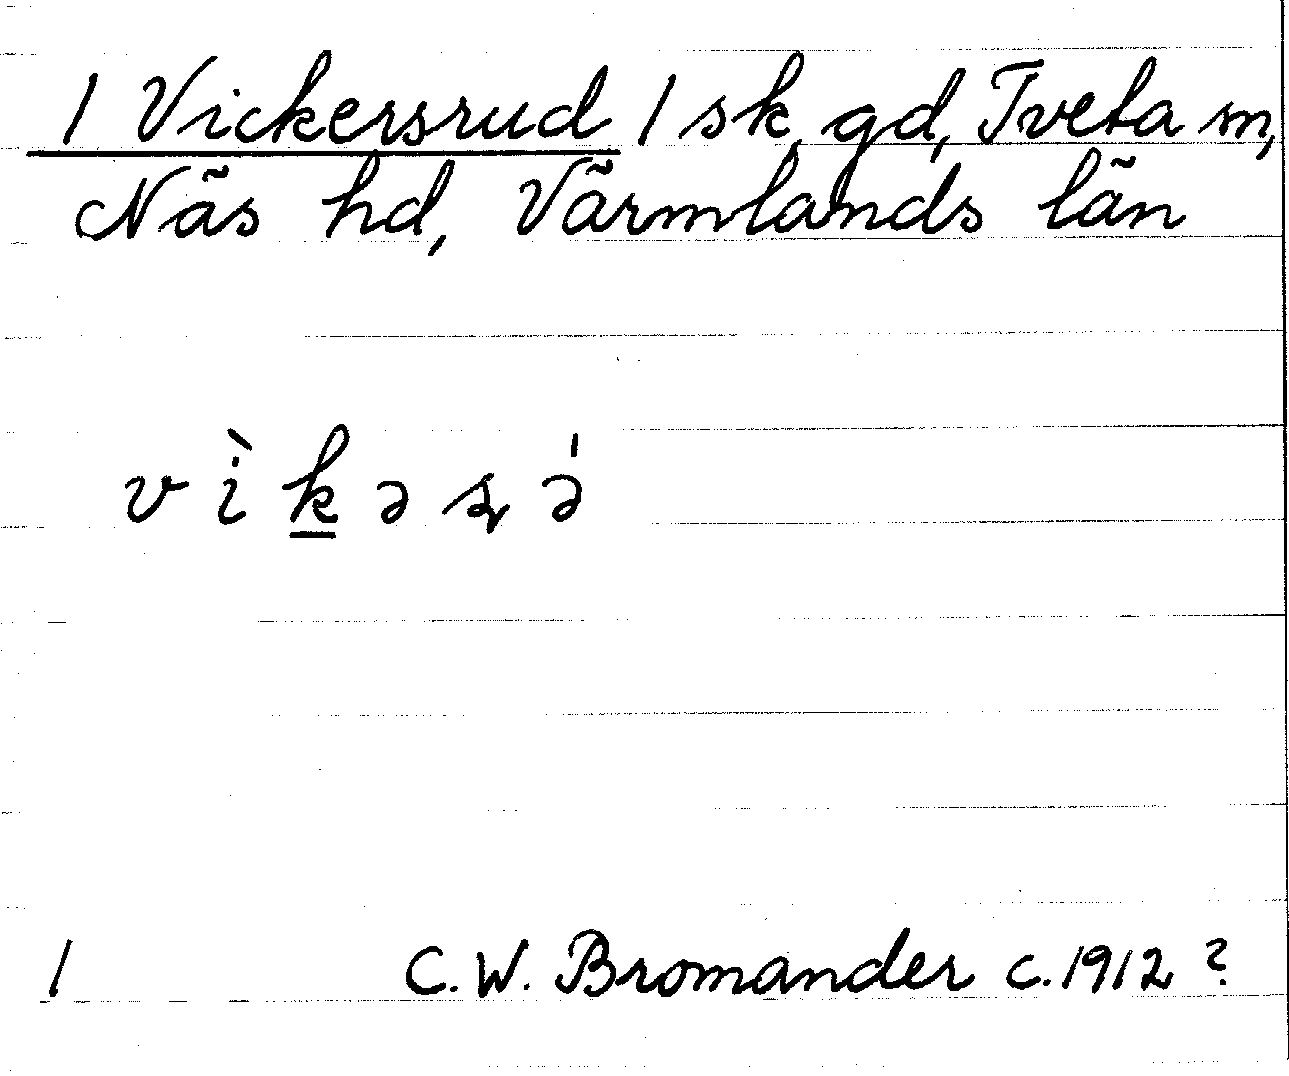 / Vickersrud / sk, gd, Tveta sn,
Näs hd, Värmlands län
vìkəʂə̍
/ C. W. Bromander c. 1912 ?